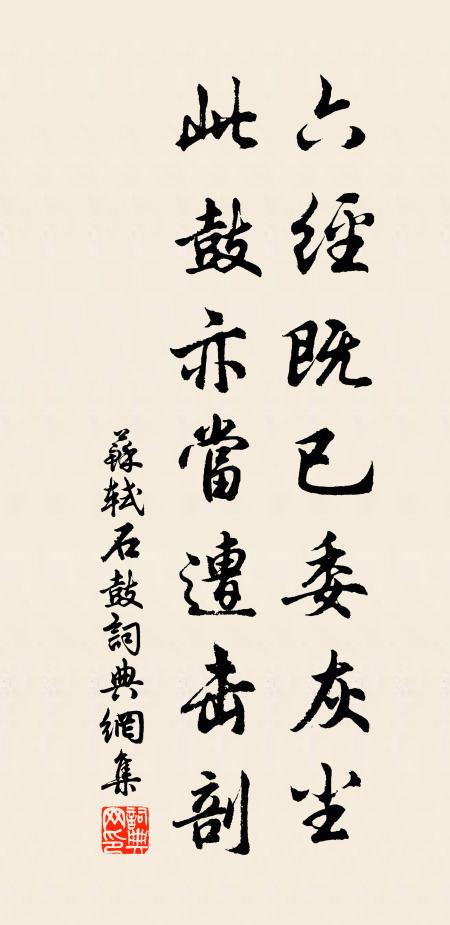 六經既已委灰尘
此鼓亦當遭击剖
蘇轼石鼓詞典網集
詞典网印